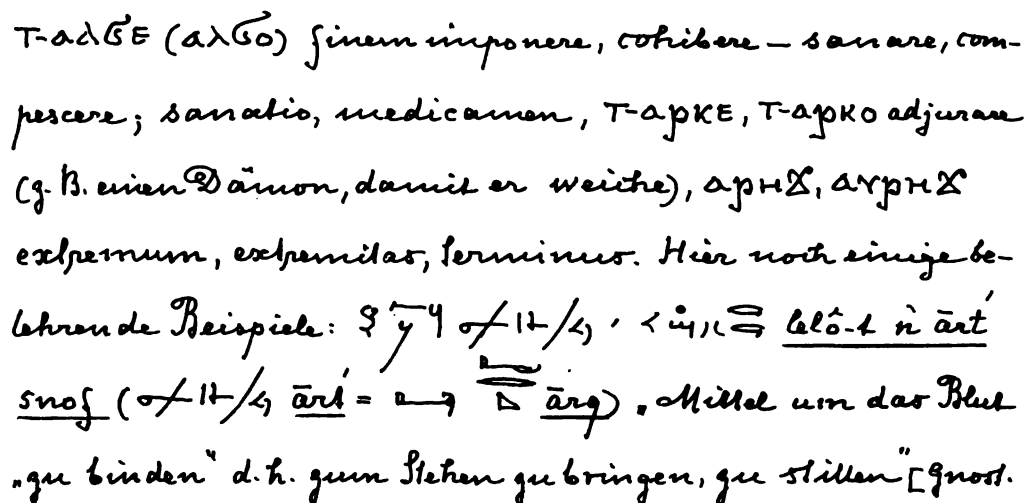 ⲧ-ⲁⲗϭⲉ (ⲁⲗϭⲟ) finem imponere, cohibere – sanare, com-
pescere; sanatio, medicamen, ⲧ-ⲁⲣⲕⲉ, ⲧ-ⲁⲣⲕⲟ adjurare
(z. B. einen Dämon, damit er weiche), ⲁⲣⲏϫ, ⲁⲩⲣⲏϫ
extremum, extremitas, terminus. Hier noch einige be-
lehrende Beispiele: lelô-t ǹ ārt́
snof (ārt́ = ārq) „Mittel um das Blut
„zu binden“ d. h. zum Stehen zu bringen, zu stillen“ [Gnost.